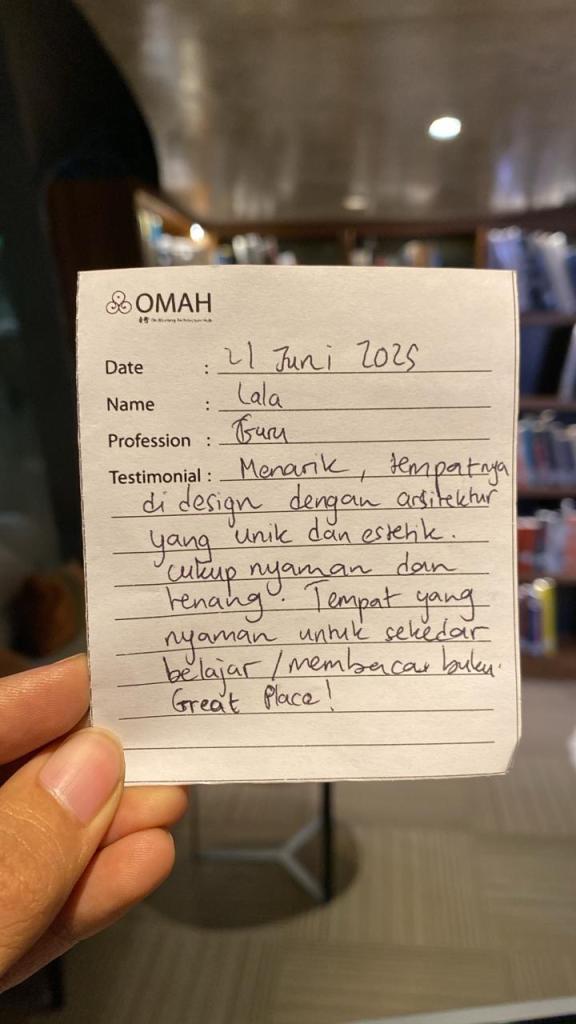 OMAH
Date : 21 Juni 2025
Name : Lala
Profession : Guru
Testimonial : Menarik, tempatnya
di design dengan arsitektur
yang unik dan estetik.
cukup nyaman dan
tenang. Tempat yang
nyaman untuk sekedar
belajar / membaca buku.
Great Place!